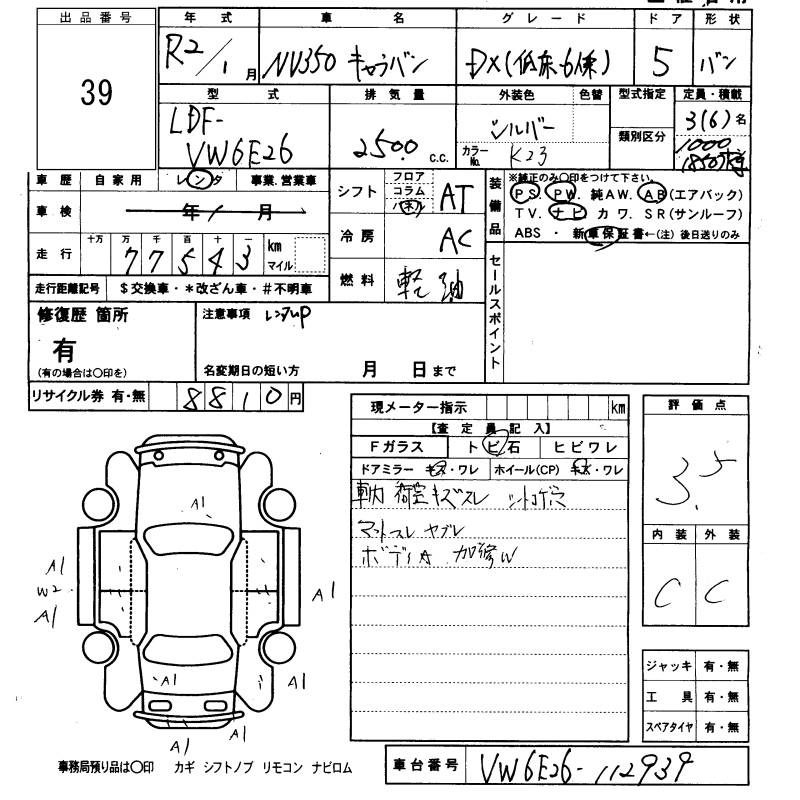 出品番号 年式 車名 グレード ドア 形状
39 R2/1月 NV350 キャラバン DX(低床6人乗) 5 バン
型式 排気量 外装色 色替 型式指定 定員・積載
LDF-VW6E26 2500 c.c. シルバー 類別区分 3(6)名
カラーNo. K23 1000 1850 kg
車歴 自家用 レンタ 事業.営業車 シフト フロア コラム パネル AT 装備品 ※純正のみ〇印をつけて下さい。
PS. PW. 純AW. AB(エアバック)
車検 年 / 月 TV. ナビ カワ. SR(サンルーフ)
冷房 AC ABS ・ 新車保証書←(注)後日送りのみ
走行 十万 万 千 百 十 一 km マイル
77543
燃料 軽油 セールスポイント
走行距離記号 $交換車・*改ざん車・#不明車
修復歴 箇所 注意事項 レンタup
有
(有の場合は〇印を) 名変期日の短い方 月 日まで
リサイクル券 有・無 8810円
現メーター指示 km 評価点
【査定員記入】 3.5
Fガラス トビ石 ヒビワレ
ドアミラー キズ・ワレ ホイール(CP) キズ・ワレ
車内 荷室キズスレ シートコゲ
マットスレ ヤブレ 内装 外装
ボディA 加修W C C
A1
A1
W2
A1
A1
A1 A1
A1 A1
ジャッキ 有・無
工具 有・無
スペアタイヤ 有・無
事務局預り品は〇印 カギ シフトノブ リモコン ナビロム 車台番号 VW6E26-112939